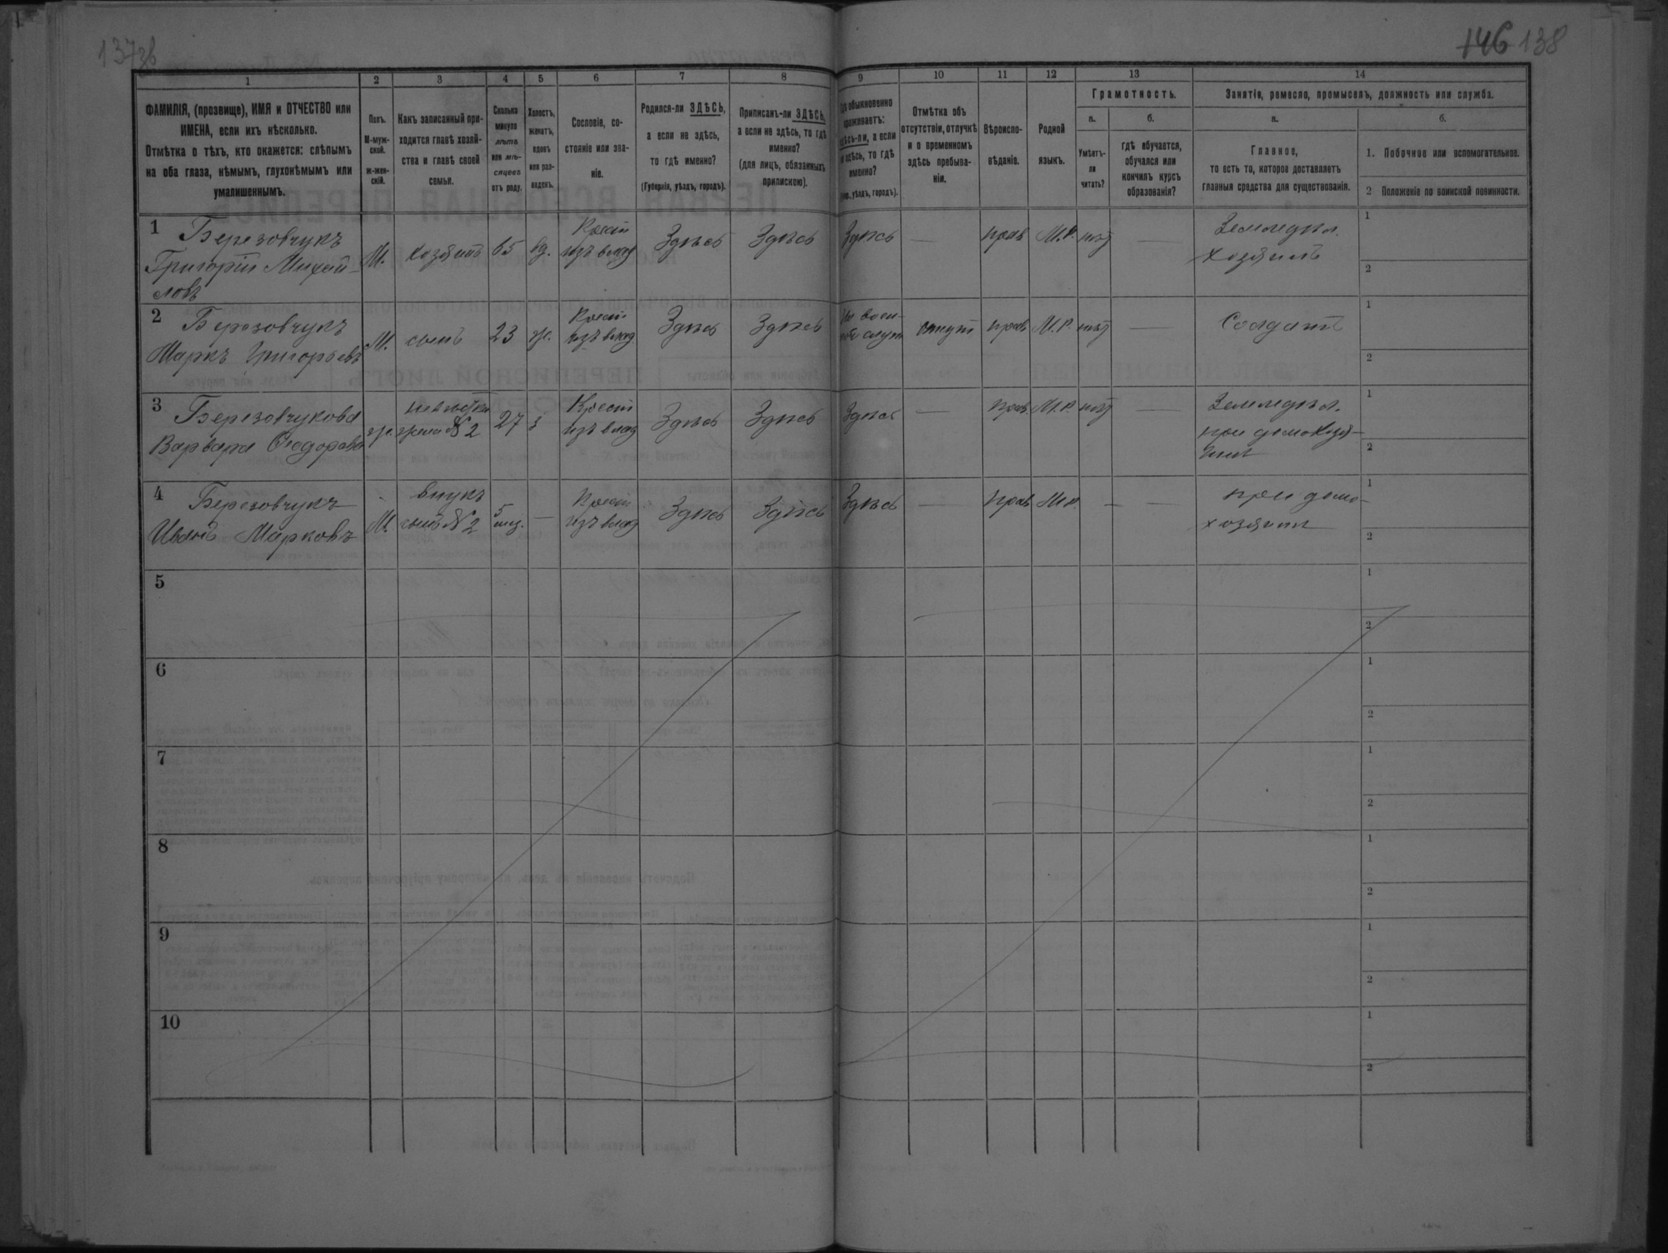 137об
146 138
1 2 3 4 5 6 7 8 9 10 11 12 13 14
ФАМИЛІЯ, (прозвище), ИМЯ и ОТЧЕСТВО или
ИМЕНА, если ихъ нѣсколько.
Отмѣтка о тѣхъ, кто окажется: слѣпымъ
на оба глаза, нѣмымъ, глухонѣмымъ или
умалишеннымъ.
Полъ.
М-муж-
ской.
ж-жен-
скій.
Какъ записанный при-
ходится главѣ хозяй-
ства и главѣ своей
семьи.
Сколько
минуло
лѣтъ
или мѣ-
сяцевъ
отъ роду.
Холостъ,
женатъ,
вдовъ
или раз-
веденъ.
Сословіе, со-
стояніе или зва-
ніе.
Родился-ли ЗДѢСЬ,
а если не здѣсь,
то гдѣ именно?
(Губернія, уѣздъ, городъ).
Приписанъ-ли ЗДѢСЬ,
а если не здѣсь, то гдѣ
именно?
(для лицъ, обязанныхъ
припискою).
обыкновенно
проживаетъ:
здѣсь-ли, а если
не здѣсь, то гдѣ
именно?
уѣздъ, городъ).
Отмѣтка объ
отсутствіи, отлучкѣ
и о временномъ
здѣсь пребыва-
ніи.
Вѣроиспо-
вѣданіе.
Родной
языкъ.
Грамотность.
а.
Умѣетъ-
ли
читать?
б.
гдѣ обучается,
обучался или
кончилъ курсъ
образованія?
Занятіе, ремесло, промыселъ, должность или служба.
а.
Главное,
то есть то, которое доставляетъ
главныя средства для существованія.
б.
1. Побочное или вспомогательное.
2 Положеніе по воинской повинности.
1 Березовчукъ
Григорій Михай-
ловъ
М. хозяинъ 65 вд. Крест. изъ влад Здѣсь Здѣсь Здѣсь — прав М.Р. нѣт — Земледѣл. хозяинъ 1 2
2 Березовчукъ
Маркъ Григорьевъ
М. сынъ 23 ж. Крест. изъ влад Здѣсь Здѣсь отсут прав М.Р. нѣт — Солдатъ 1 2
3 Березовчукова
Варвара Ѳеодорова
ж. невѣстка жена №2 27 з Крест изъ влад Здѣсь Здѣсь Здѣсь — прав М.Р. нѣт — Земледѣл. при домохозя- 1 2
4 Березовчукъ
Марковъ
М. внукъ сынъ №2 5 мц. — Крест изъ влад Здѣсь Здѣсь Здѣсь — прав М.Р. — — при домо- хозяинѣ 1 2
5 1 2
6 1 2
7 1 2
8 1 2
9 1 2
10 1 2